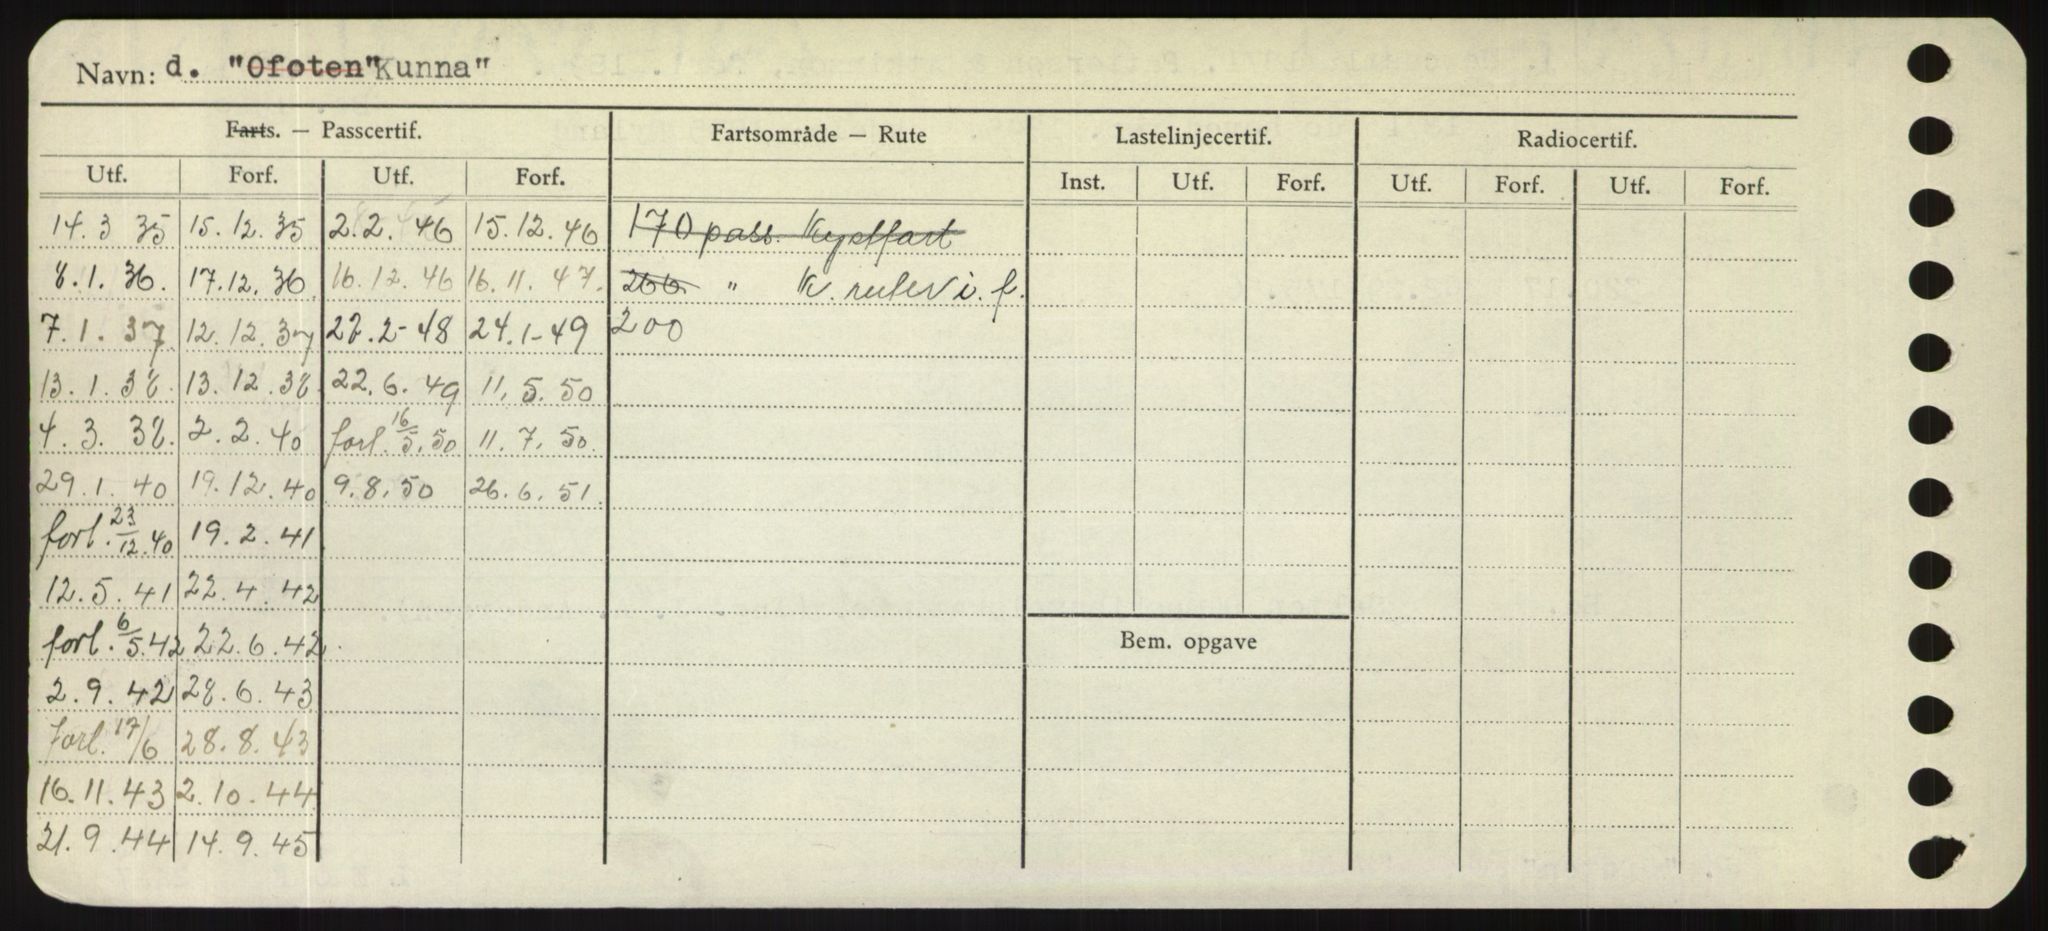 Navn: d. "Ofoten" Kunna"
Farts. — Passcertif. Fartsområde — Rute Lastelinjecertif. Radiocertif.
Utf. Forf. Utf. Forf. Inst. Utf. Forf. Utf. Forf. Utf. Forf.
14.3 35 15.12.35 2.2.46 15.12.46 170 pass. Kystfart
8.1.36. 17.12.36 16.12.46 16.11.47. 266 " K. ruter i. f.
7.1.37 12.12.37 22.2-48 24.1-49 200
13.1.38. 13.12.38. 22.6.49 11.5.50
4.3.38. 2.2.40 forl. 16/5.50 11.7.50.
29.1.40 19.12.40 9.8.50 26.6.51.
forl. 23/12.40 19.2.41
12.5.41 22.4.42
forl. 6/5.42 22.6.42.
Bem. opgave
2.9.42 28.6.43
Forl. 17/6 28.8.43
16.11.43 2.10.44
21.9.44 14.9.45